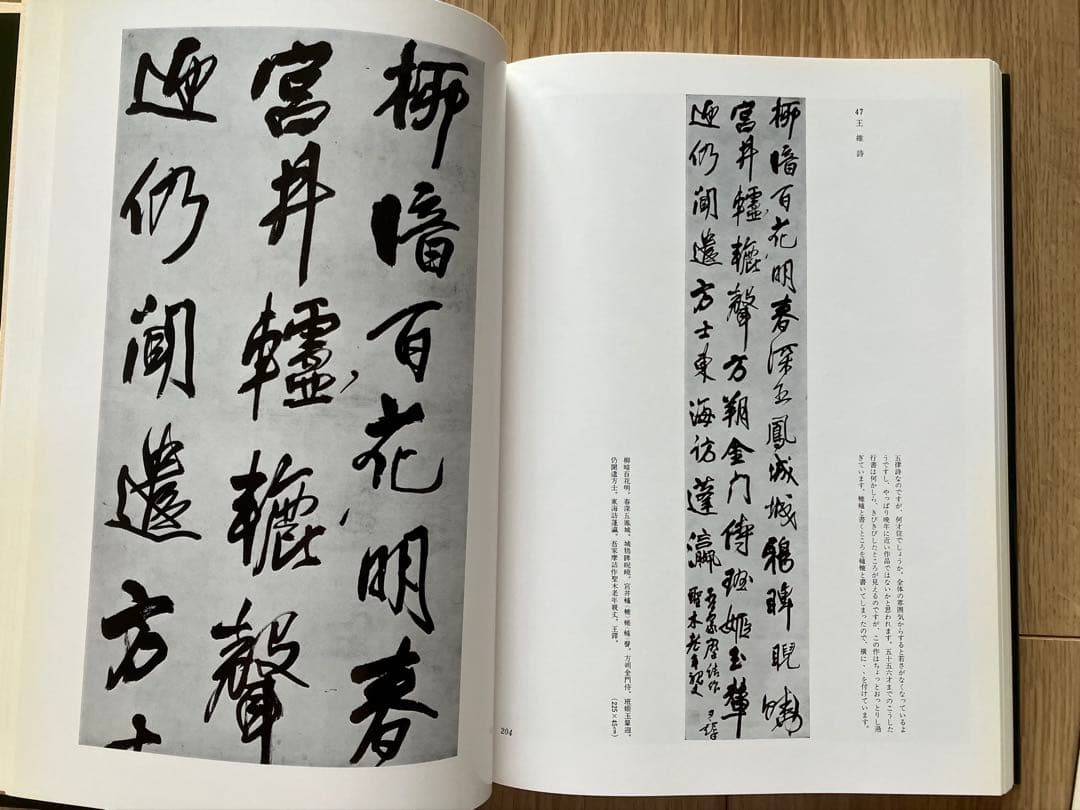 47 王維詩
柳暗百花明春深五鳳城城鴉睥睨曉
宮井轤轆聲方朔金门侍班姬玉輦
迎仍聞遣方士東海訪蓬瀛
吾家摩詰作
聖木老年親丈 王鐸
五律詩なのですが、何才位でしょうか、全体の雰囲気からすると若さがなくなっているよ
うですし、やっぱり晩年に近い作品ではないかと思われます。五十五六才までのこうした
行書は何かしら、きびきびしたところが見えるのですが、この作はちょっとおっとりし過
ぎています。轆轤と書くところを轤轆と書いてしまったので、横に、、を付けています。
柳暗百花明、春深五鳳城、城鴉睥睨曉、宮井轤(轆)轆(轤)聲、方朔金門侍、班姬玉輦迎、
仍聞遣方士、東海訪蓬瀛、吾家摩詰作聖木老年親丈、王鐸。
(225×45cm)
204
柳暗百花明春
宮井轤轆聲
迎仍聞遣方士